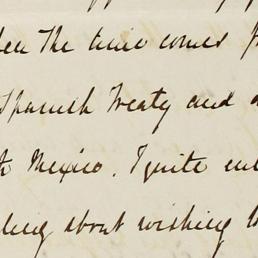 when the time comes f
Spanish Treaty and
Mexico. I quite en
ling about wishing to